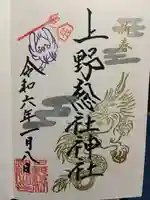 新春
上野総社神社
令和六年一月八日